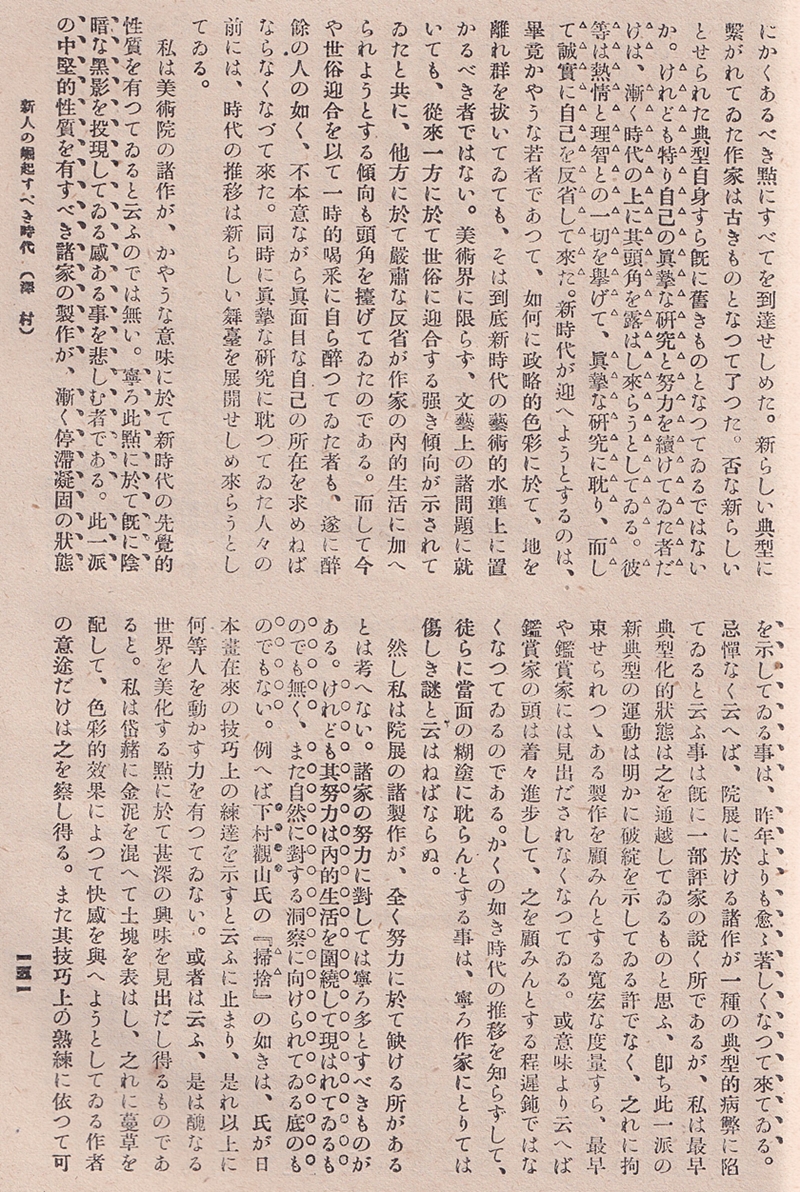 にかくあるべき點にすべてを到達せしめた。新らしい典型に
繫がれてゐた作家は古きものとなつて了つた。否な新らしい
とせられた典型自身すら旣に舊きものとなつてゐるではない
か。けれども特り自己の眞摯な研究と努力を續けてゐた者だ
けは、漸く時代の上に其頭角を露はし來らうとしてゐる。彼
等は熱情と理智との一切を擧げて、眞摯な研究に耽り、而し
て誠實に自己を反省して來た。新時代が迎へようとするのは、
畢竟かやうな若者であつて、如何に政略的色彩に於て、地を
離れ群を拔いてゐても、そは到底新時代の藝術的水準上に置
かるべき者ではない。美術界に限らず、文藝上の諸問題に就
いても、從來一方に於て世俗に迎合する强き傾向が示されて
ゐたと共に、他方に於て嚴肅な反省が作家の內的生活に加へ
られようとする傾向も頭角を擡げてゐたのである。而して今
や世俗迎合を以て一時的喝釆に自ら醉つてゐた者も、遂に醉
餘の人の如く、不本意ながら眞面目な自己の所在を求めねば
ならなくなつて來た。同時に眞摯な研究に耽つてゐた人々の
前には、時代の推移は新らしい舞臺を展開せしめ來らうとし
てゐる。
私は美術院の諸作が、かやうな意味に於て新時代の先覺的
性質を有つてゐると云ふのでは無い。寧ろ此點に於て旣に陰
暗な黑影を投現してゐる感ある事を悲しむ者である。此一派
の中堅的性質を有すべき諸家の製作が、漸く停滯凝固の狀態
新人の崛起すべき時代（澤村）
を示してゐる事は、昨年よりも愈〻著しくなつて來てゐる。
忌憚なく云へば、院展に於ける諸作が一種の典型的病弊に陷
てゐると云ふ事は旣に一部評家の說く所であるが、私は最早
典型化的狀態は之を通越してゐるものと思ふ、卽ち此一派の
新典型の運動は明かに破綻を示してゐる許でなく、之れに拘
束せられつゝある製作を顧みんとする寬宏な度量すら、最早
や鑑賞家には見出だされなくなつてゐる。或意味より云へば
鑑賞家の頭は着々進步して、之を顧みんとする程遲鈍ではな
くなつてゐるのである。かくの如き時代の推移を知らずして、
徒らに當面の糊塗に耽らんとする事は、寧ろ作家にとりては
傷しき謎と云はねばならぬ。
然し私は院展の諸製作が、全く努力に於て缺ける所がある
とは考へない。諸家の努力に對しては寧ろ多とすべきものが
ある。けれども其努力は內的生活を圍繞して現はれてゐるも
のでも無く、また自然に對する洞察に向けられてゐる底のも
のでもない。例へば下村觀山氏の『掃捨』の如きは、氏が日
本畫在來の技巧上の練達を示すと云ふに止まり、是れ以上に
何等人を動かす力を有つてゐない。或者は云ふ、是は醜なる
世界を美化する點に於て甚深の興味を見出だし得るものであ
ると。私は岱赭に金泥を混へて土塊を表はし、之れに蔓草を
配して、色彩的效果によつて快感を與へようとしてゐる作者
の意途だけは之を察し得る。また其技巧上の熟練に依つて可
一五一